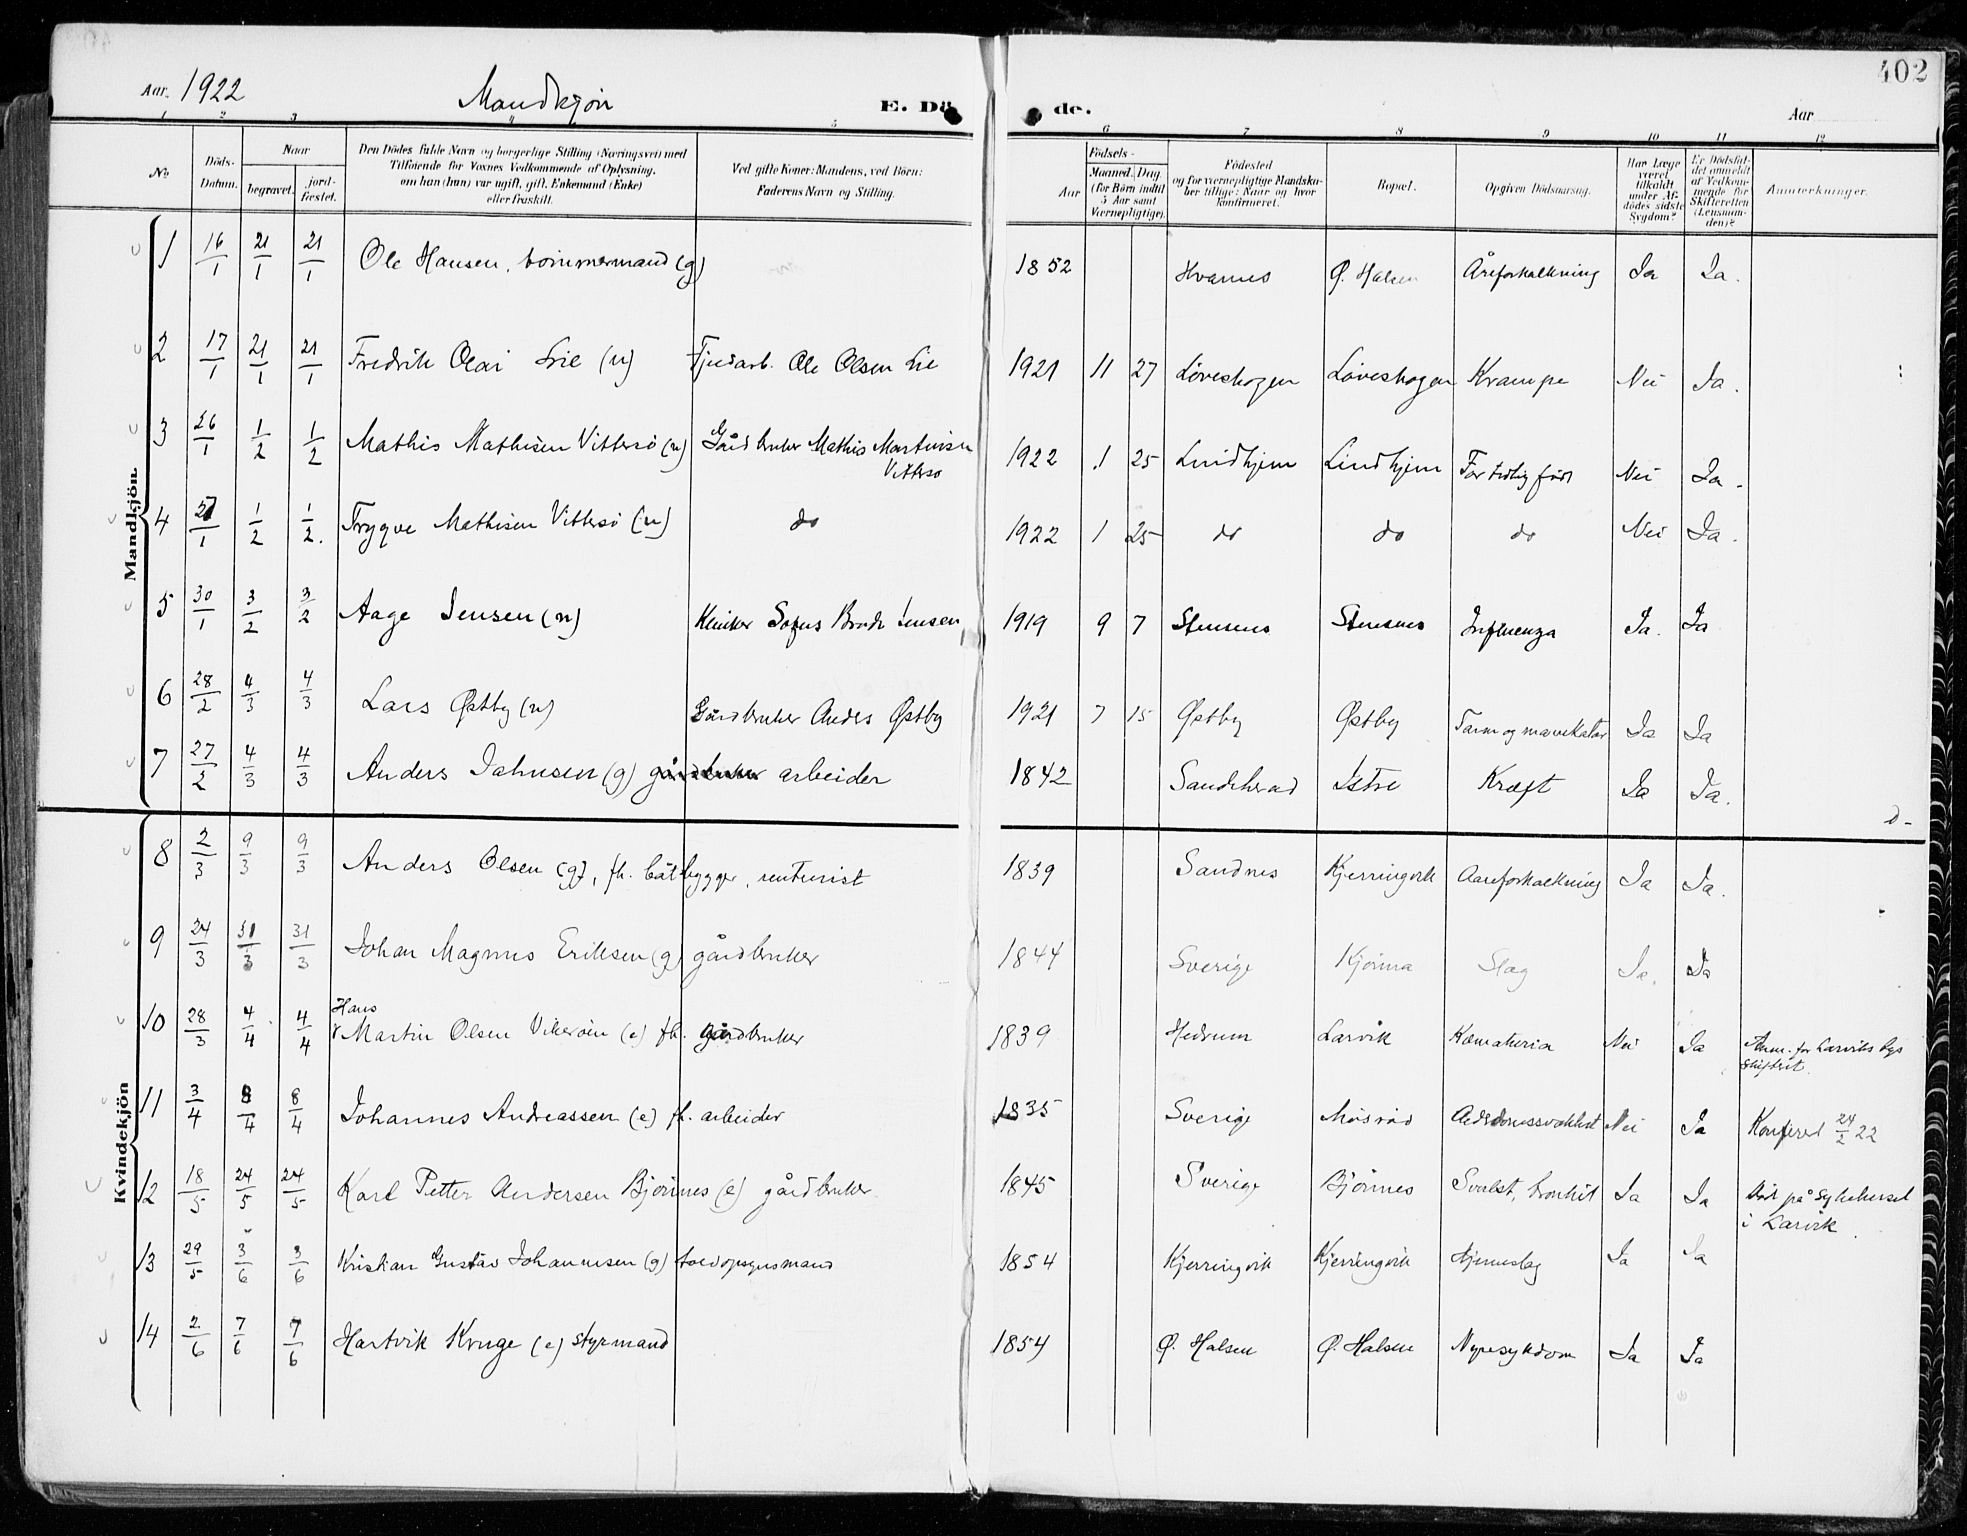 402
Aar. 1922 Mandkjøn E. Dö de. Aar
1 2 3 4 5 6 7 8 9 10 11 12
No Döds-Datum. Naar begravet. jord-fæstet. Den Dödes fulde Navn og borgerlige Stilling (Næringsvei) med Tilföiende for Voxnes Vedkommende af Oplysning, om han (hun) var ugift, gift, Enkemand (Enke) eller fraskilt. Ved gifte Koner: Mandens, ved Börn: Faderens Navn og Stilling. Födsels- Aar Maaned. Dag (for Börn indtil 5 Aar samt Værnepligtige). Födested og for værnepligtige Mandskaber tillige: Naar og hvor konfirmeret. Bopæl. Opgiven Dödsaarsag. Har Læge været tilkaldt under Afdödes sidste Sygdom? Er Dödsfaldet anmeldt af Vedkommende for Skifteretten (Lensmanden)? Anmerkninger.
Mandkjön
1 16/1 21/1 21/1 Ole Hansen, tømmermand (g) 1852 Hvarnes Ø. Halsen Åreforkalkning Ja Ja.
2 17/1 21/1 21/1 Fredrik Olai Lie (u) Fjøsarb. Ole Olsen Lie 1921 11 27 Løveskogen Løveskogen Krampe Nei Ja.
3 26/1 1/2 1/2 Mathis Mathisen Vittersø (u) Gårdbruker Mathis Martinsen 1922 1 25 Lindhjem Lindhjem For tidlig født Nei Ja.
Vittersø
4 27/1 1/2 1/2. Trygve Mathisen Vittersø (u) do 1922 1 25 do do do Nei Ja.
5 30/1 3/2 3/2 Aage Jensen (u) Sofus Jensen 1919 9 7 Stensnes Stensnes Influenza Ja. Ja
6 28/2 4/3 4/3 Lars Østby (u) Gårdbruker Anders Østby 1921 7 15 Østby Østby Tarm og mavekatar Ja Ja
7 27/2 4/3 4/3 Anders Jahnsen (g) gårdbruker arbeider 1842 Sandeherad Istre Kræft Ja Ja.
8 2/3 9/3 9/3 Anders Olsen (g), fh. båtbygger, rentenist 1839 Sandnes Kjerringvik Aareforkalkning Ja Ja.
9 24/3 31/3 31/3 Johan Magnus Eriksen (g) gårdbruker 1844 Sverige Kjønna Slag Ja. Ja
Hans
10 28/3 4/4 4/4 Martin Olsen Vikerøen (e) fh. gårdbruker 1839 Hedrum Larvik Hæmaturia Nei Ja Anm. for Larviks bys
skifteret.
Kvindekjön
11 3/4 8/4 8/4 Johannes Andreassen (e) fh. arbeider 1835 Sverige Alderdomssvakhet Nei Ja Konfered 24/2 22
12 18/5 24/5 24/5 Karl Petter Andersen Bjønnes (e) gårdbruker. 1845 Sverige Bjønnes Svulst, bronkit Ja Ja Død på sykehuset
i Larvik.
13 29/5 3/6 3/6 Kristian Gustav Johannesen (g) toldopsynsmand 1854 Kjerringvik Kjerringvik Hjerneslag Ja Ja
14 2/6 7/6 7/6 Hartvik Kruge (e) styrmand 1854 Ø. Halsen Ø. Halsen Nyresykdom Ja Ja